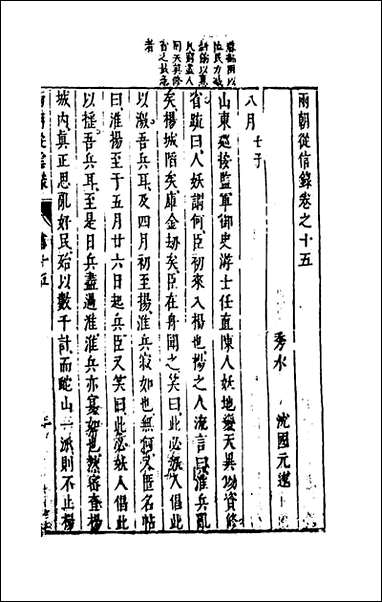 兩朝從信錄卷之十五
秀水 沈國元述
八月 七子
山東巡按監軍御史游士任直陳人妖地變天異乞資修
省疏曰人妖謂何臣初來入楊也楊之人流言曰淮兵亂
矣楊城陷矣庫金劫矣臣在身聞之笑曰此必妖人倡此
以激吾兵耳及四月初至揚淮兵寂如也無何又匿名帖
曰淮揚至于五月廿六日起兵臣又笑曰此必妖人倡此
以搖吾兵耳至是日兵盡過淮淮兵亦寂如也然審查楊
城內真正思亂奸民殆以數千計而蛇山一派則不止楊
兩朝從信錄
卷十五
者